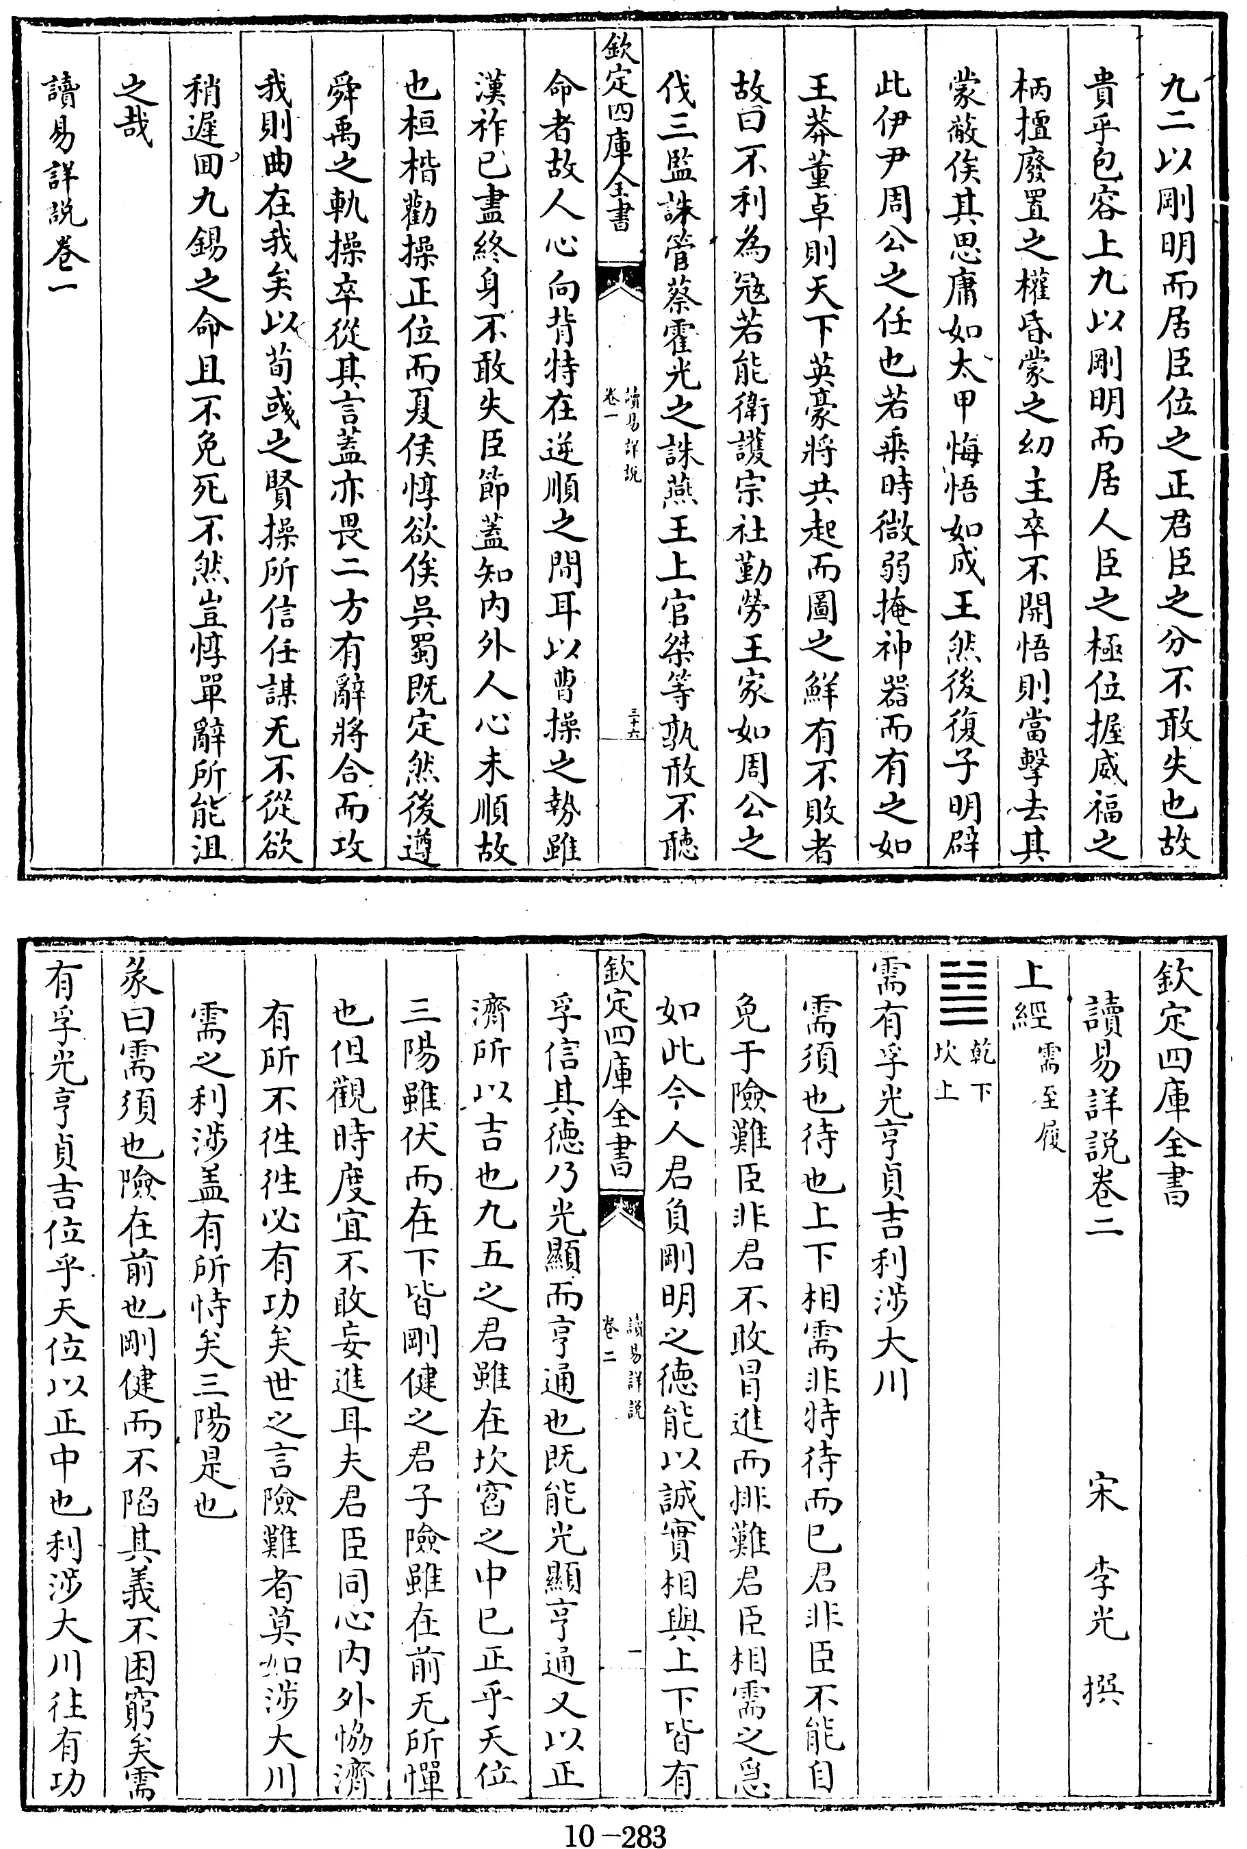 九二以剛明而居臣位之正君臣之分不敢失也故
貴乎包容上九以剛明而居人臣之極位握威福之
柄擅廢置之權昏蒙之幼主卒不開悟則當擊去其
蒙蔽俟其思庸如太甲悔悟如成王然後復子明辟
此伊尹周公之任也若乘時微弱掩神器而有之如
王莽董卓則天下英豪將共起而圖之鮮有不敗者
故曰不利為寇若能衛護宗社勤勞王家如周公之
伐三監誅管蔡霍光之誅燕王上官桀等孰敢不聽
欽定四庫全書
讀易詳說
卷一
三十六
命者故人心向背特在逆順之間耳以曹操之勢雖
漢祚已盡終身不敢失臣節蓋知内外人心未順故
也桓楷勸操正位而夏侯惇欲俟吳蜀既定然後遵
舜禹之軌操卒從其言蓋亦畏二方有辭將合而攻
我則曲在我矣以荀彧之賢操所信任謀无不從欲
稍遲回九錫之命且不免死不然豈惇單辭所能沮
之哉
讀易詳說卷一
欽定四庫全書
讀易詳說卷二
宋 李光 撰
上經 需至履
䷄ 乾下 坎上
需有孚光亨貞吉利涉大川
需須也待也上下相需非特待而已君非臣不能自
免于險難臣非君不敢冒進而排難君臣相需之急
如此今人君負剛明之德能以誠實相與上下皆有
欽定四庫全書
讀易詳說
卷二
一
孚信其德乃光顯而亨通也既能光顯亨通又以正
濟所以吉也九五之君雖在坎窞之中已正乎天位
三陽雖伏而在下皆剛健之君子險雖在前无所憚
也但觀時度宜不敢妄進耳夫君臣同心内外恊濟
有所不徃徃必有功矣世之言險難者莫如涉大川
需之利涉盖有所恃矣三陽是也
彖曰需須也險在前也剛健而不陷其義不困窮矣需
有孚光亨貞吉位乎天位以正中也利涉大川往有功
10-283